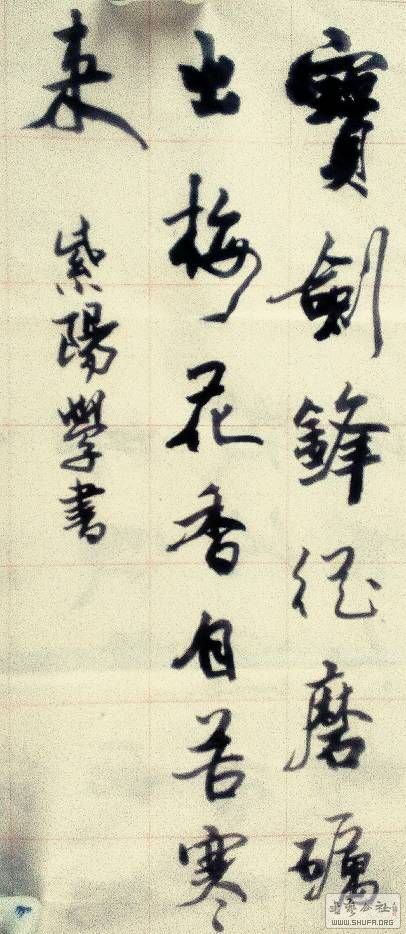 寶劍鋒從磨礪
出梅花香自苦寒
來
紫陽學書
书艺公社
WWW.SHUFA.ORG